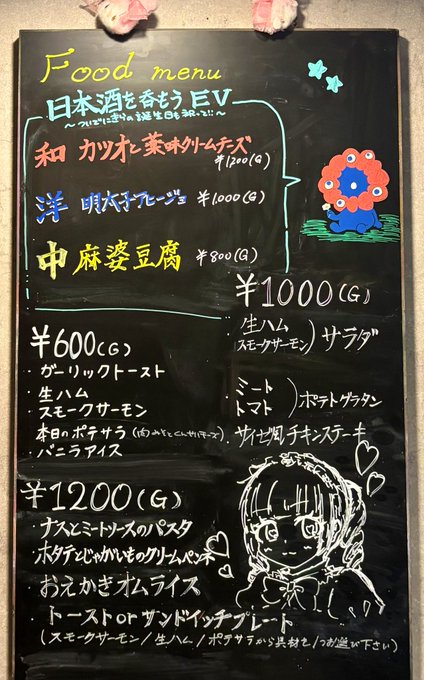 Food menu
日本酒を呑もう EV
～ついでにきらの誕生日も祝って!!～
和 カツオと薬味クリームチーズ
¥1200(G)
洋 明太子アヒージョ ¥1,000(G)
中 麻婆豆腐 ¥800(G)
¥1000(G)
生ハム
スモークサーモン)サラダ
・ミート
トマト)ポテトグラタン
・サイゼ風チキンステーキ
¥600(G)
・ガーリックトースト
・生ハム
・スモークサーモン
・本日のポテサラ(肉みそとくんせいチーズ)
・バニラアイス
¥1200(G)
・ナスとミートソースのパスタ
・ホタテとじゃがいものクリームペンネ
・おえかきオムライス
・トーストorサンドイッチプレート
(スモークサーモン/生ハム/ポテサラから具材を1つお選び下さい)